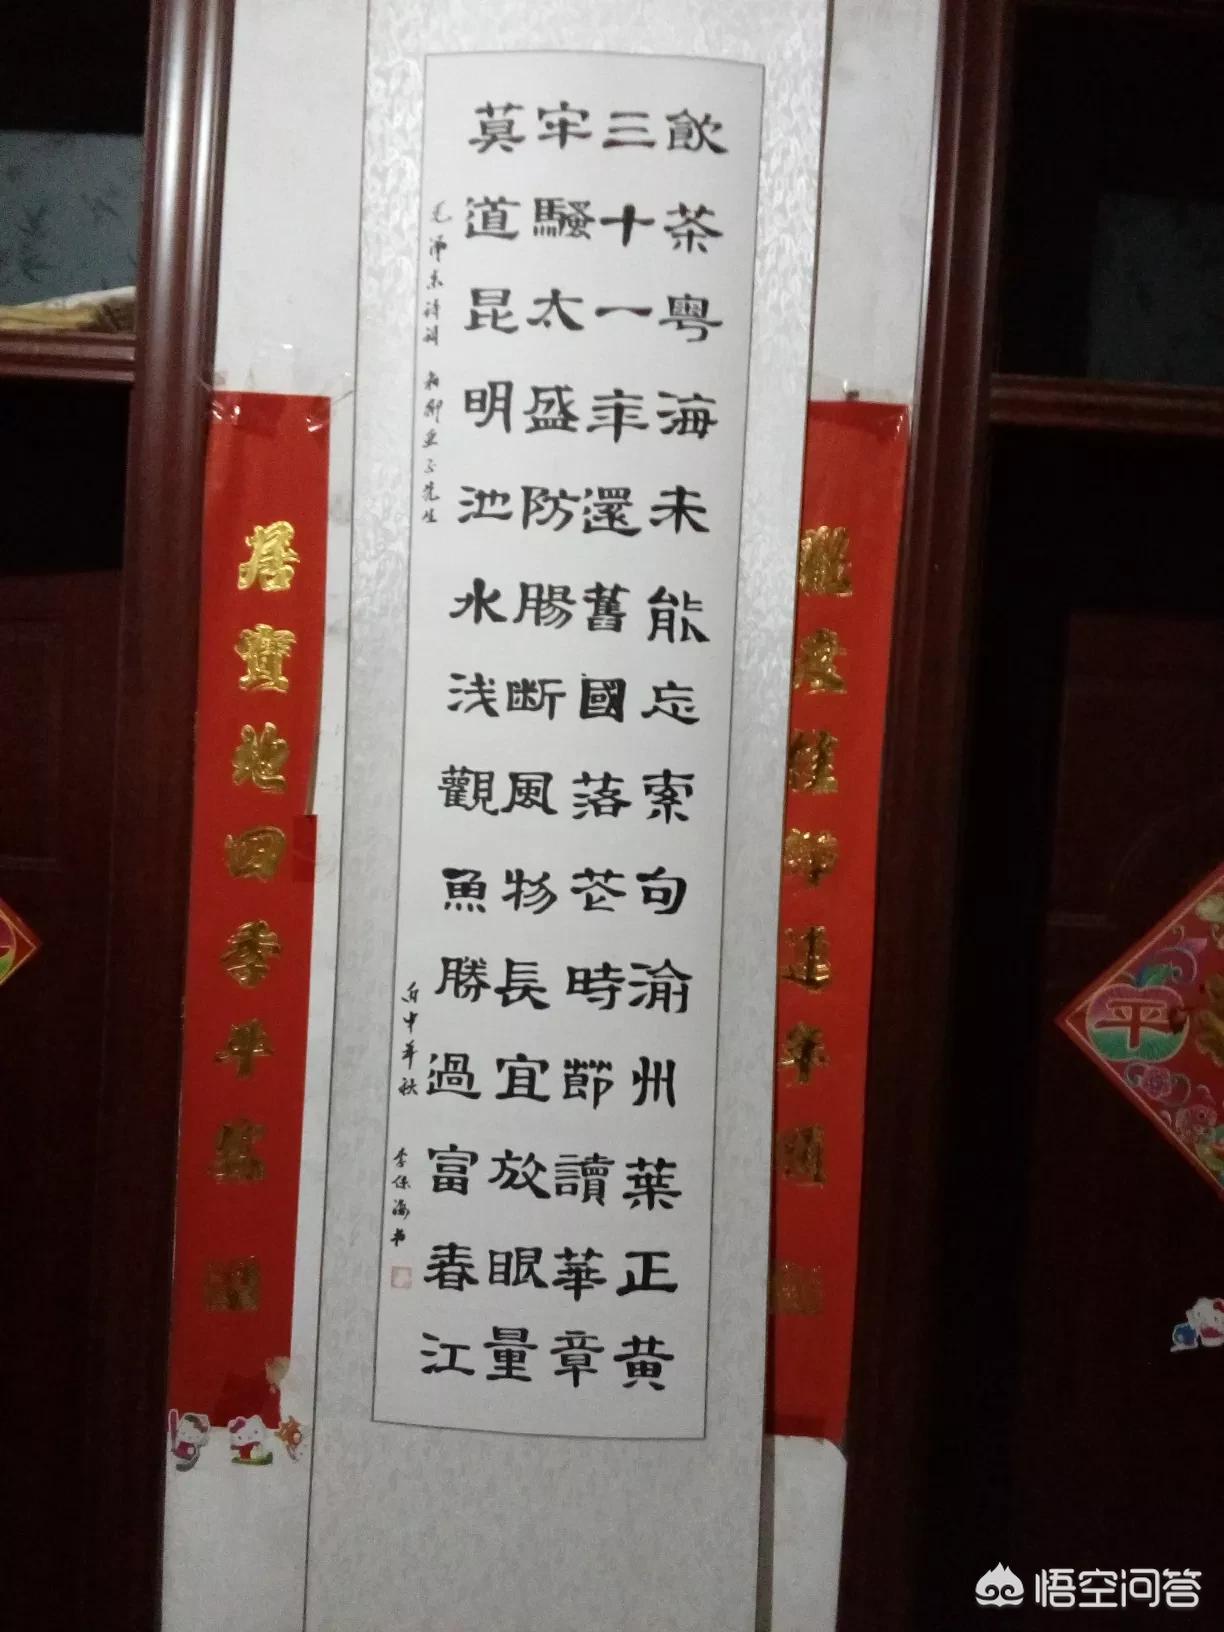 歡度佳節連年
飲茶粤海未能忘索句渝州葉正黄
三十一年還舊國落花時節讀華章
牢騷太盛防腸断風物長宜放眼量
莫道昆明池水浅觀魚勝過富春江
毛澤东诗词 和柳亚子先生
丙申年秋 李保海书
居寶地四季平安
平
悟空问答